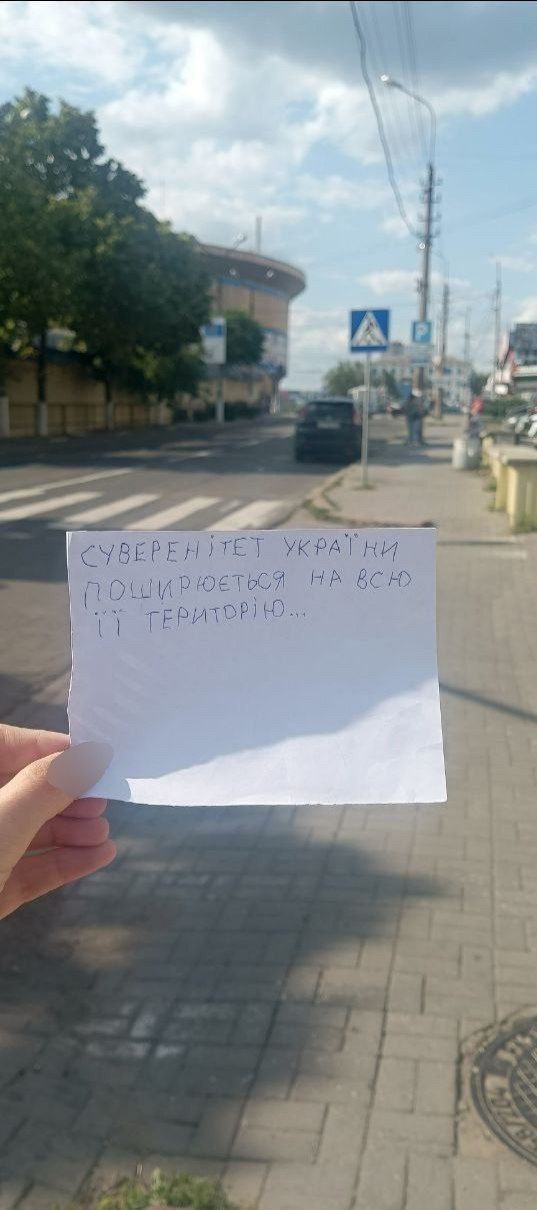 СУВЕРЕНІТЕТ УКРАЇНИ
ПОШИРЮЄТЬСЯ НА ВСЮ
ЇЇ ТЕРИТОРІЮ...
P